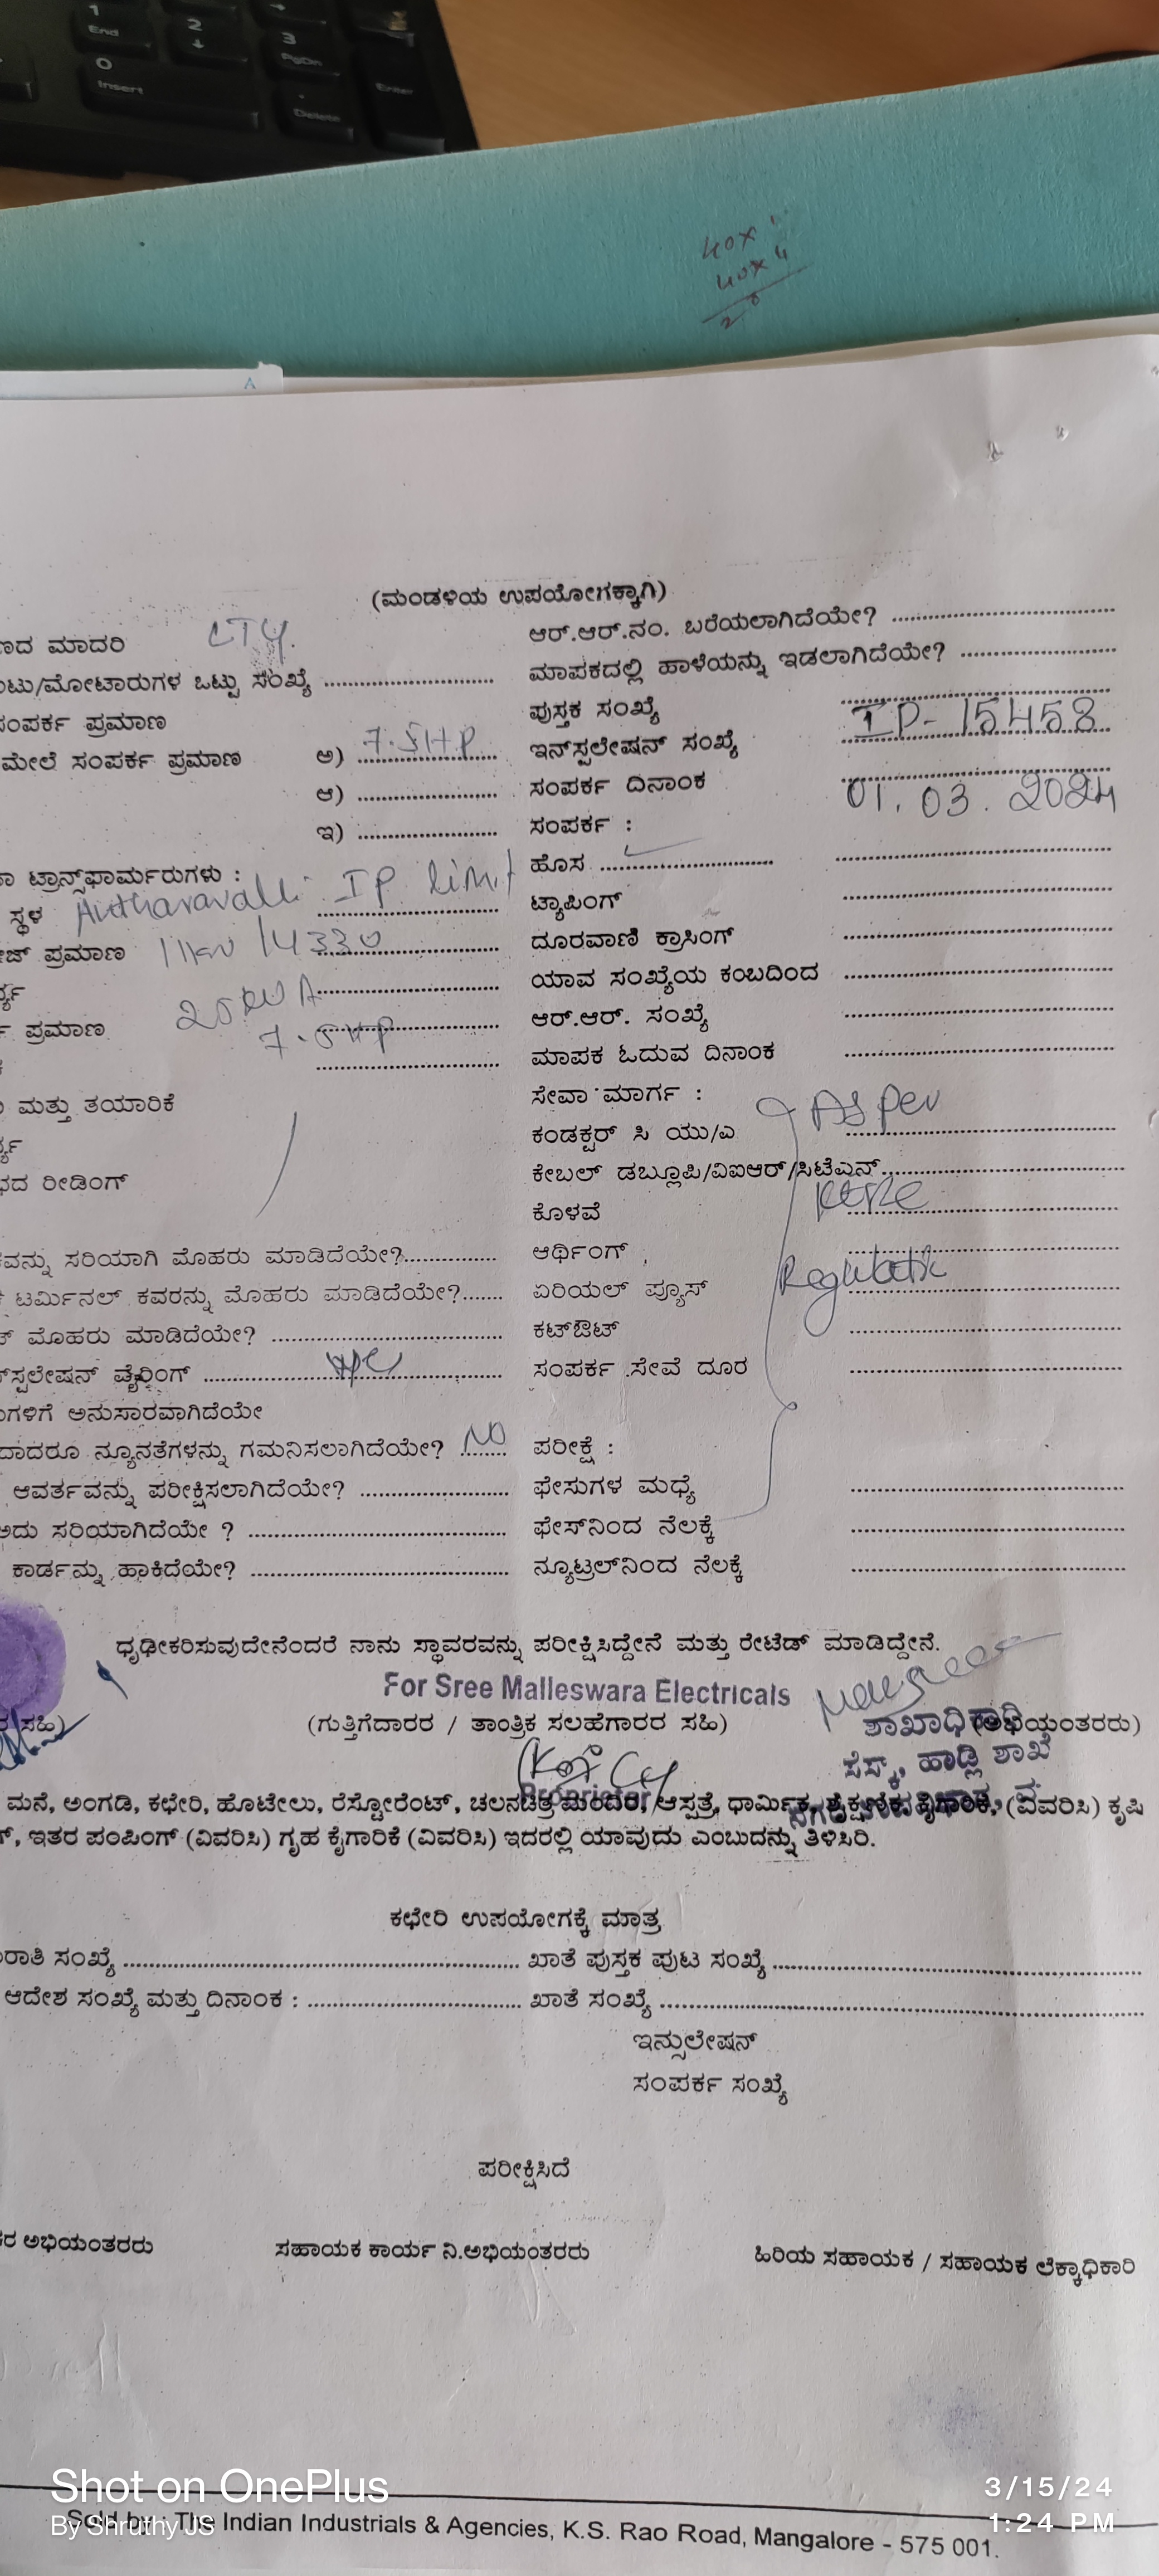 1
End
2
3
PgDn
0
Insert
.
Delete
Enter
40x
40x4
20
A
(ಮಂಡಳಿಯ ಉಪಯೋಗಕ್ಕಾಗಿ)
ಮಾದರಿ LT4 ಆರ್.ಆರ್.ನಂ. ಬರೆಯಲಾಗಿದೆಯೇ?
ಮೋಟಾರುಗಳ ಒಟ್ಟು ಸಂಖ್ಯೆ ಮಾಪಕದಲ್ಲಿ ಹಾಳೆಯನ್ನು ಇಡಲಾಗಿದೆಯೇ?
ಸಂಪರ್ಕ ಪ್ರಮಾಣ ಪುಸ್ತಕ ಸಂಖ್ಯೆ
ಮೇಲೆ ಸಂಪರ್ಕ ಪ್ರಮಾಣ ಅ) 7.5HP ಇನ್‌ಸ್ಪಲೇಷನ್ ಸಂಖ್ಯೆ IP-15458
ಆ) ಸಂಪರ್ಕ ದಿನಾಂಕ 01.03.2024
ಇ) ಸಂಪರ್ಕ :
ಟ್ರಾನ್ಸ್‌ಫಾರ್ಮರುಗಳು : ಹೊಸ
ಸ್ಥಳ IP limit ಟ್ಯಾಪಿಂಗ್
ಪ್ರಮಾಣ 11kv /4330 ದೂರವಾಣಿ ಕ್ರಾಸಿಂಗ್
25KVA ಯಾವ ಸಂಖ್ಯೆಯ ಕಂಬದಿಂದ
ಪ್ರಮಾಣ 7.5HP ಆರ್.ಆರ್. ಸಂಖ್ಯೆ
ಮಾಪಕ ಓದುವ ದಿನಾಂಕ
ಮತ್ತು ತಯಾರಿಕೆ ಸೇವಾ ಮಾರ್ಗ :
ಕಂಡಕ್ಟರ್ ಸಿ ಯು/ಎ As per
ರೀಡಿಂಗ್ ಕೇಬಲ್ ಡಬ್ಲೂಪಿ/ವಿಐಆರ್/ಸಿಟಿಎನ್
ಕೊಳವೆ
ಸರಿಯಾಗಿ ಮೊಹರು ಮಾಡಿದೆಯೇ? ಆರ್ಥಿಂಗ್
ಟರ್ಮಿನಲ್ ಕವರನ್ನು ಮೊಹರು ಮಾಡಿದೆಯೇ? ಏರಿಯಲ್ ಪ್ಯೂಸ್
ಮೊಹರು ಮಾಡಿದೆಯೇ? ಕಟ್‌ಔಟ್
ವೈರಿಂಗ್ ಸಂಪರ್ಕ ಸೇವೆ ದೂರ
ಅನುಸಾರವಾಗಿದೆಯೇ
ನ್ಯೂನತೆಗಳನ್ನು ಗಮನಿಸಲಾಗಿದೆಯೇ? NO ಪರೀಕ್ಷೆ :
ಆವರ್ತವನ್ನು ಪರೀಕ್ಷಿಸಲಾಗಿದೆಯೇ? ಫೇಸುಗಳ ಮಧ್ಯೆ
ಅದು ಸರಿಯಾಗಿದೆಯೇ ? ಫೇಸ್‌ನಿಂದ ನೆಲಕ್ಕೆ
ಕಾರ್ಡನ್ನು ಹಾಕಿದೆಯೇ? ನ್ಯೂಟ್ರಲ್‌ನಿಂದ ನೆಲಕ್ಕೆ
ಧೃಢೀಕರಿಸುವುದೇನೆಂದರೆ ನಾನು ಸ್ಥಾವರವನ್ನು ಪರೀಕ್ಷಿಸಿದ್ದೇನೆ ಮತ್ತು ರೇಟೆಡ್ ಮಾಡಿದ್ದೇನೆ.
For Sree Malleswara Electricals
ಸಹಿ) (ಗುತ್ತಿಗೆದಾರರ / ತಾಂತ್ರಿಕ ಸಲಹೆಗಾರರ ಸಹಿ) ಶಾಖಾಧಿಕಾರಿ
ಸೆಸ್ಕ್, ಹಾಡ್ಲಿ ಶಾಖೆ
Proprietor
ಮನೆ, ಅಂಗಡಿ, ಕಛೇರಿ, ಹೊಟೇಲು, ರೆಸ್ಟೋರೆಂಟ್, ಚಲನಚಿತ್ರ ಮಂದಿರ, ಆಸ್ಪತ್ರೆ, ಧಾರ್ಮಿಕ, (ವಿವರಿಸಿ) ಕೃಷಿ
ಇತರ ಪಂಪಿಂಗ್ (ವಿವರಿಸಿ) ಗೃಹ ಕೈಗಾರಿಕೆ (ವಿವರಿಸಿ) ಇದರಲ್ಲಿ ಯಾವುದು ಎಂಬುದನ್ನು ತಿಳಿಸಿರಿ.
ಕಛೇರಿ ಉಪಯೋಗಕ್ಕೆ ಮಾತ್ರ
ಸಂಖ್ಯೆ ಖಾತೆ ಪುಸ್ತಕ ಪುಟ ಸಂಖ್ಯೆ
ಆದೇಶ ಸಂಖ್ಯೆ ಮತ್ತು ದಿನಾಂಕ : ಖಾತೆ ಸಂಖ್ಯೆ
ಇನ್ಸುಲೇಷನ್
ಸಂಪರ್ಕ ಸಂಖ್ಯೆ
ಪರೀಕ್ಷಿಸಿದೆ
ಅಭಿಯಂತರರು ಸಹಾಯಕ ಕಾರ್ಯ ನಿ.ಅಭಿಯಂತರರು ಹಿರಿಯ ಸಹಾಯಕ / ಸಹಾಯಕ ಲೆಕ್ಕಾಧಿಕಾರಿ
Shot on OnePlus
By Shruthy JS
3/15/24
1:24 PM
Sold by : The Indian Industrials & Agencies, K.S. Rao Road, Mangalore - 575 001.